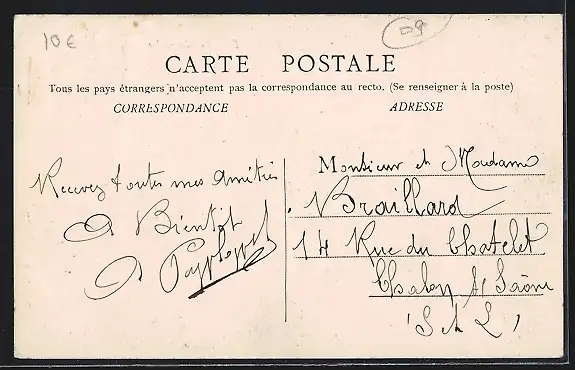 10 €
09
CARTE POSTALE
Tous les pays étrangers n'acceptent pas la correspondance au recto. (Se renseigner à la poste)
CORRESPONDANCE
ADRESSE
Recevez toutes mes Amitiés
A Bientôt
A
Monsieur et Madame
Braillard
14 Rue du Chatelet
Chalon s/ Saône
(S et L)